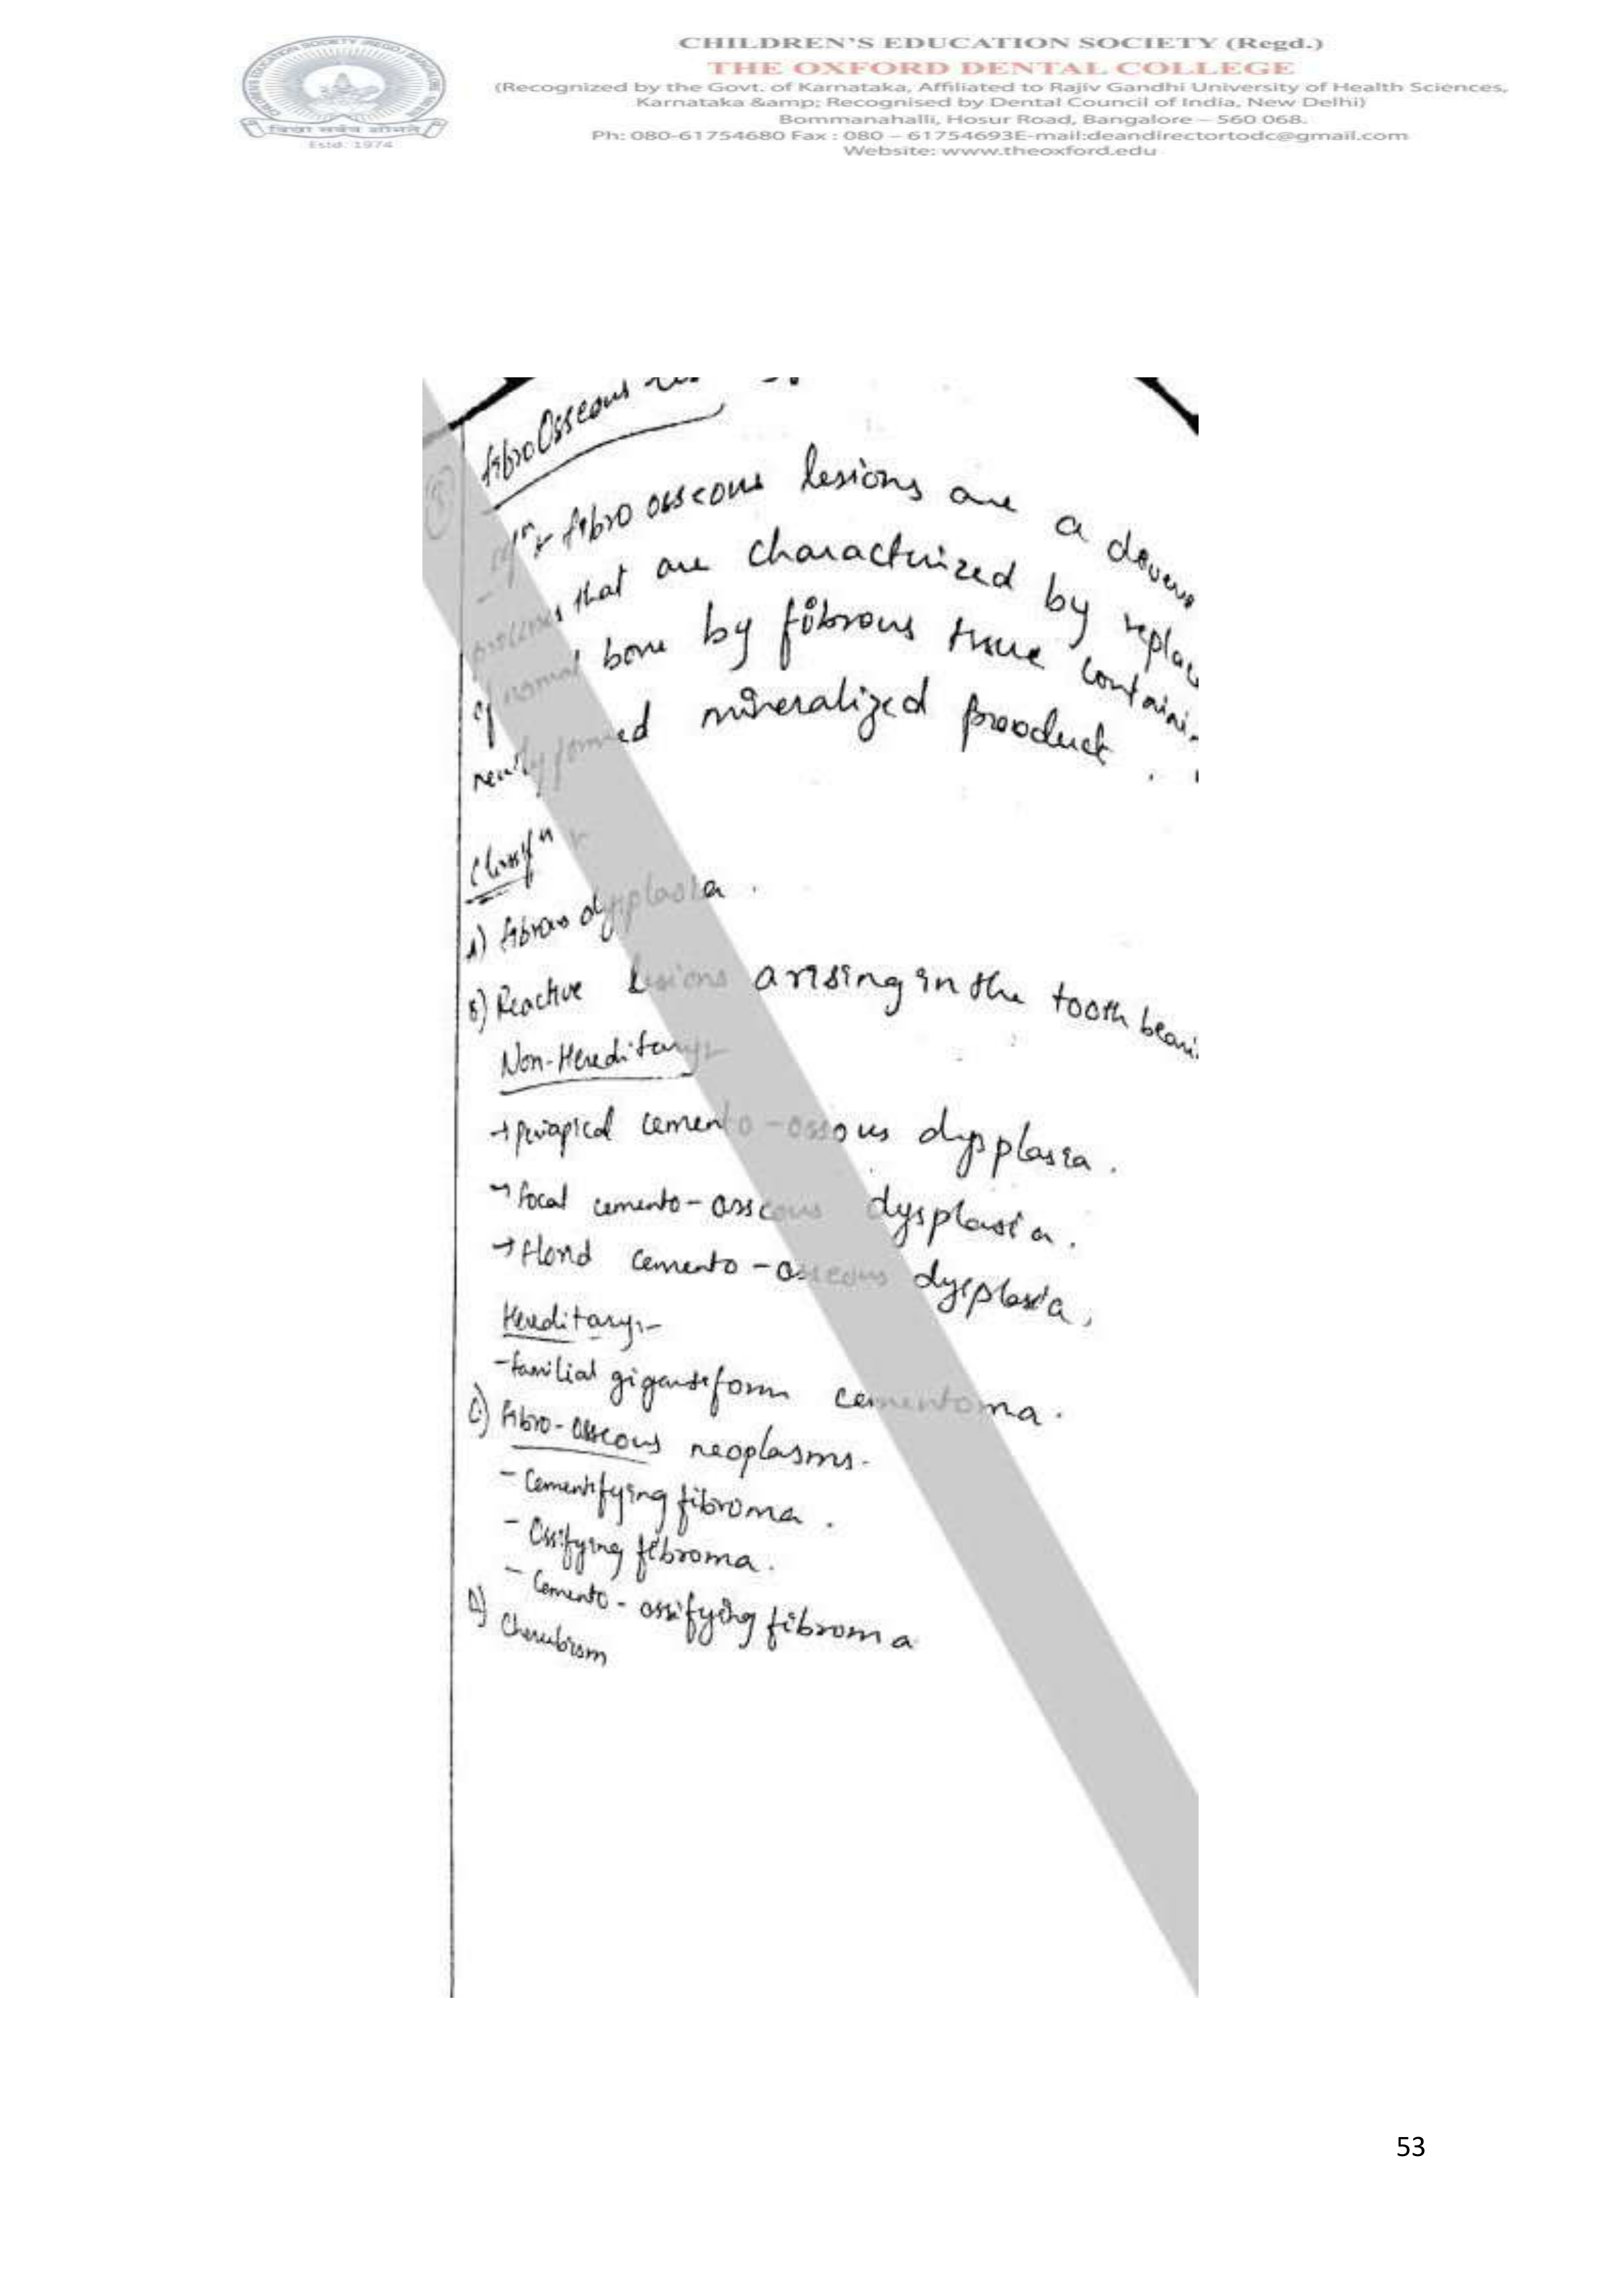 CHILDREN'S EDUCATION SOCIETY (Regd.)
THE OXFORD DENTAL COLLEGE
(Recognized by the Govt. of Karnataka, Affiliated to Rajiv Gandhi University of Health Sciences,
Karnataka &amp; Recognised by Dental Council of India, New Delhi)
Bommanahalli, Hosur Road, Bangalore – 560 068.
Ph: 080-61754680 Fax : 080 – 61754693E-mail:deandirectortodc@gmail.com
Website: www.theoxford.edu
Estd: 1974
fibroOsseous
fibro osseous lesions are a
that are characterized by replac
of normal bone by fibrous tissue containi
newly formed mineralized prooduct.
Classifn
A) fibrous dysplasia.
B) Reactive lesions arising in the tooth beari
Non-Hereditary:-
→ periapical cemento-ossous dysplasia.
→ focal cemento-osseous dysplasia.
→ florid cemento-osseous dysplasia,
Hereditary:-
- familial gigantiform cementoma.
C) fibro-osseous neoplasms.
- Cementifying fibroma.
- Ossifying fibroma.
- Cemento-ossifying fibroma
D) Cherubism
53